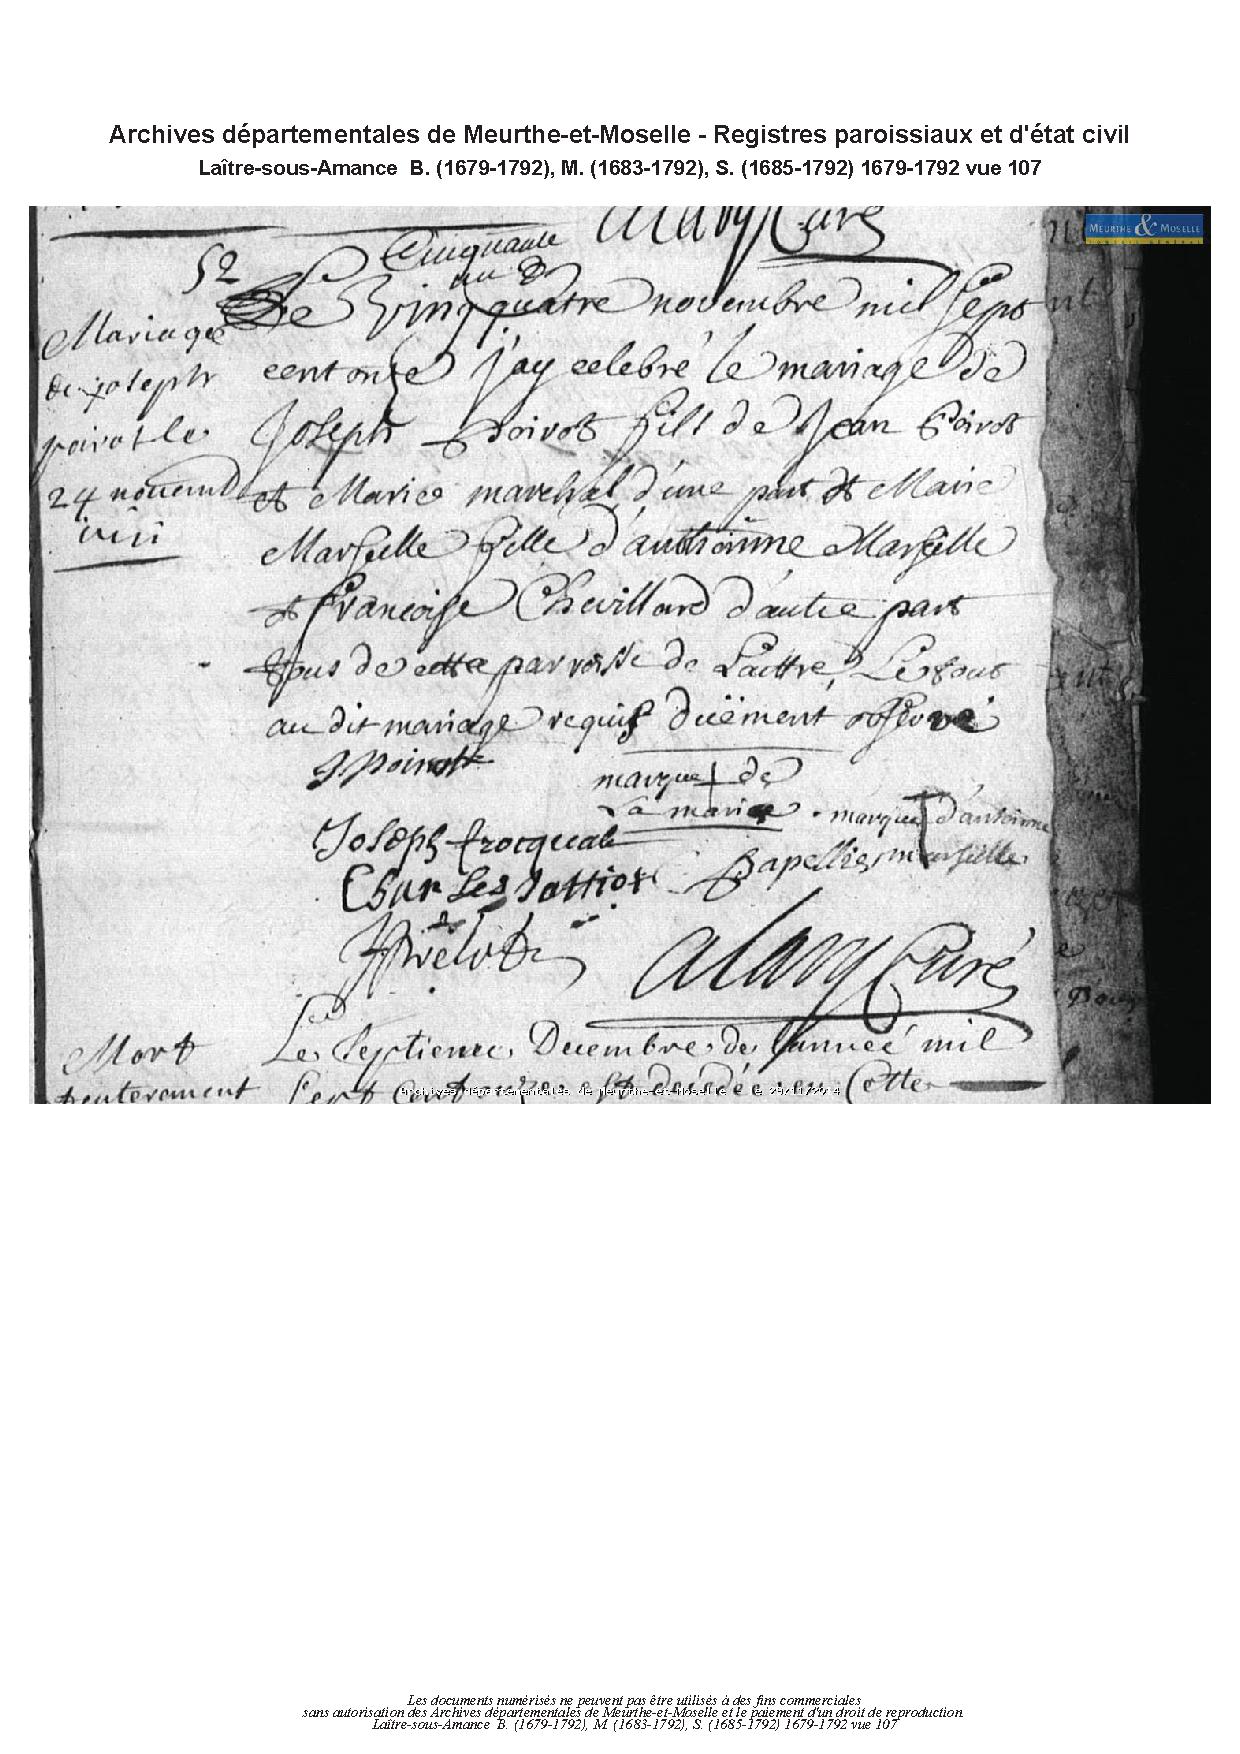 Archives départementales de Meurthe-et-Moselle - Registres paroissiaux et d'état civil
Laître-sous-Amance B. (1679-1792), M. (1683-1792), S. (1685-1792) 1679-1792 vue 107
MEURTHE & MOSELLE
CONSEIL GÉNÉRAL
alavy Curé
Cinquante
52
Mariage
de joseph
poirot le
24 novemb
Le vingquatre novembre mil sept
cent onze j'ay celebré le mariage de
Joseph Poirot fill de Jean Poirot
et Marie marchal d'une part et Marie
Marselle fille d'anthoinne Marselle
et francoise Chevillard d'autre part
tous de cette parroisse de Laittre, Le tout
au dit mariage requis duëment observé
J poirot
marque de
La mariee
marque d'antoinne
marselle
Joseph frocquat
Charles
alavy Curé
Mort
enterement
Le Septieme Decembre de l'année mil
Sept cent onze est decedée en Cette
Archives départementales de Meurthe-et-Moselle - le 29/11/2014
Les documents numérisés ne peuvent pas être utilisés à des fins commerciales
sans autorisation des Archives départementales de Meurthe-et-Moselle et le paiement d'un droit de reproduction.
Laître-sous-Amance B. (1679-1792), M. (1683-1792), S. (1685-1792) 1679-1792 vue 107